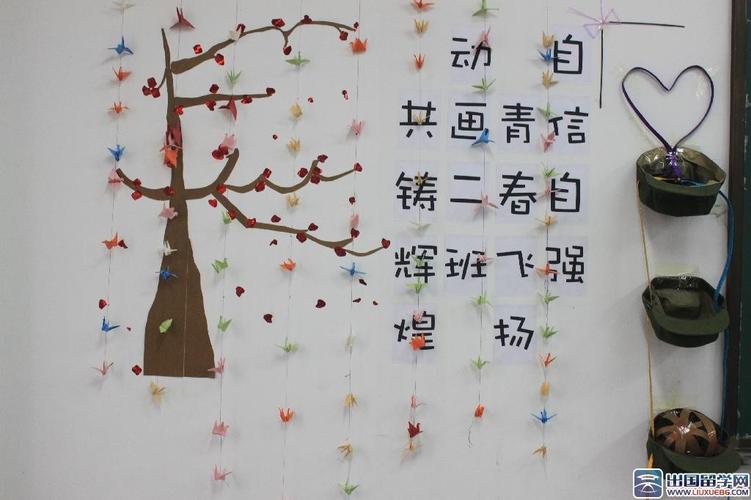 自信自强
青春飞扬
动画二班
共铸辉煌
出国留学网
WWW.LIUXUE86.COM